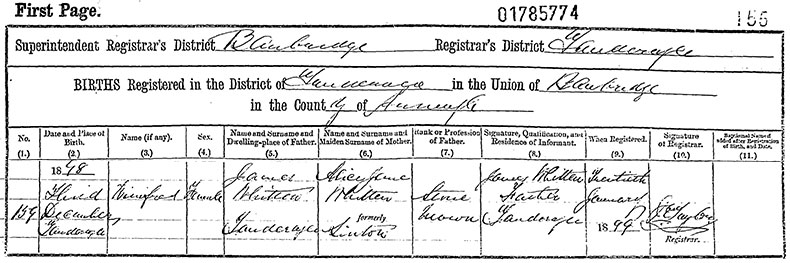 First Page.
01785774
155
Superintendent Registrar's District Banbridge Registrar's District Tanderagee
BIRTHS Registered in the District of Tanderagee in the Union of Banbridge
in the County of Armagh
No. Date and Place of Birth. Name (if any). Sex. Name and Surname and Dwelling-place of Father. Name and Surname and Maiden Surname of Mother. Rank or Profession of Father. Signature, Qualification, and Residence of Informant. When Registered. Signature of Registrar. Baptismal Name, if added after Registration of Birth, and Date.
(1.) (2.) (3.) (4.) (5.) (6.) (7.) (8.) (9.) (10.) (11.)
1898 James Alice Jane James Whitten Twentieth
Third Winifred Female Whitten Whitten Stone Father January
159 December Grocer
Tanderagee Tanderagee formerly Sinton Tanderagee 1899
Registrar.